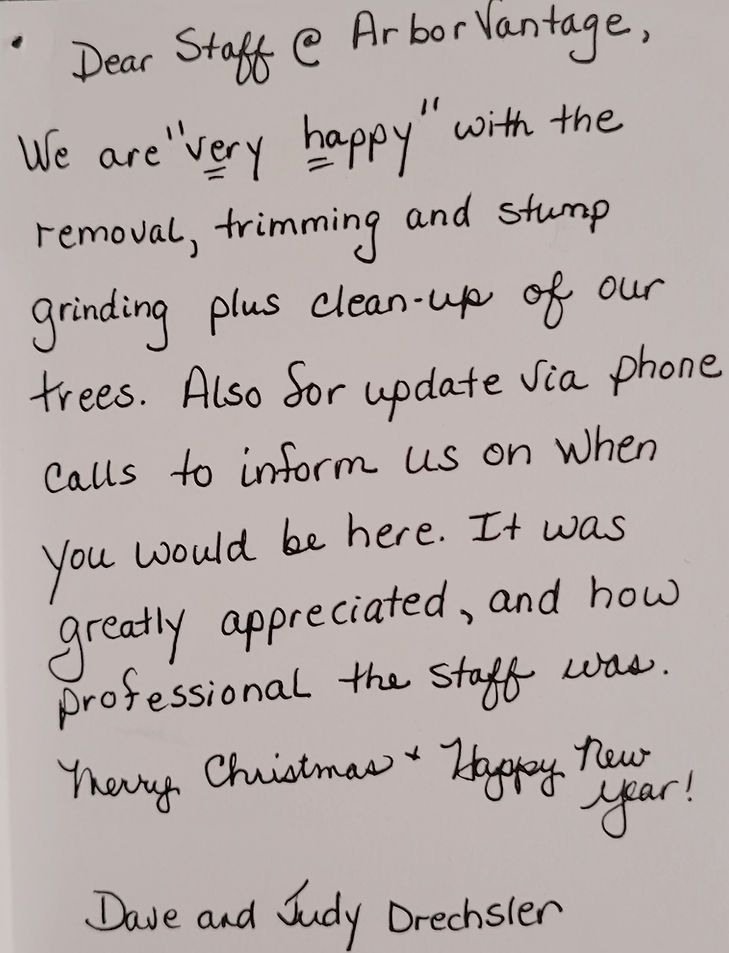 Dear Staff @ ArborVantage,
We are "very happy" with the
removal, trimming and stump
grinding plus clean-up of our
trees. Also for update via phone
calls to inform us on when
you would be here. It was
greatly appreciated, and how
professional the staff was.
Merry Christmas + Happy New
year!
Dave and Judy Drechsler